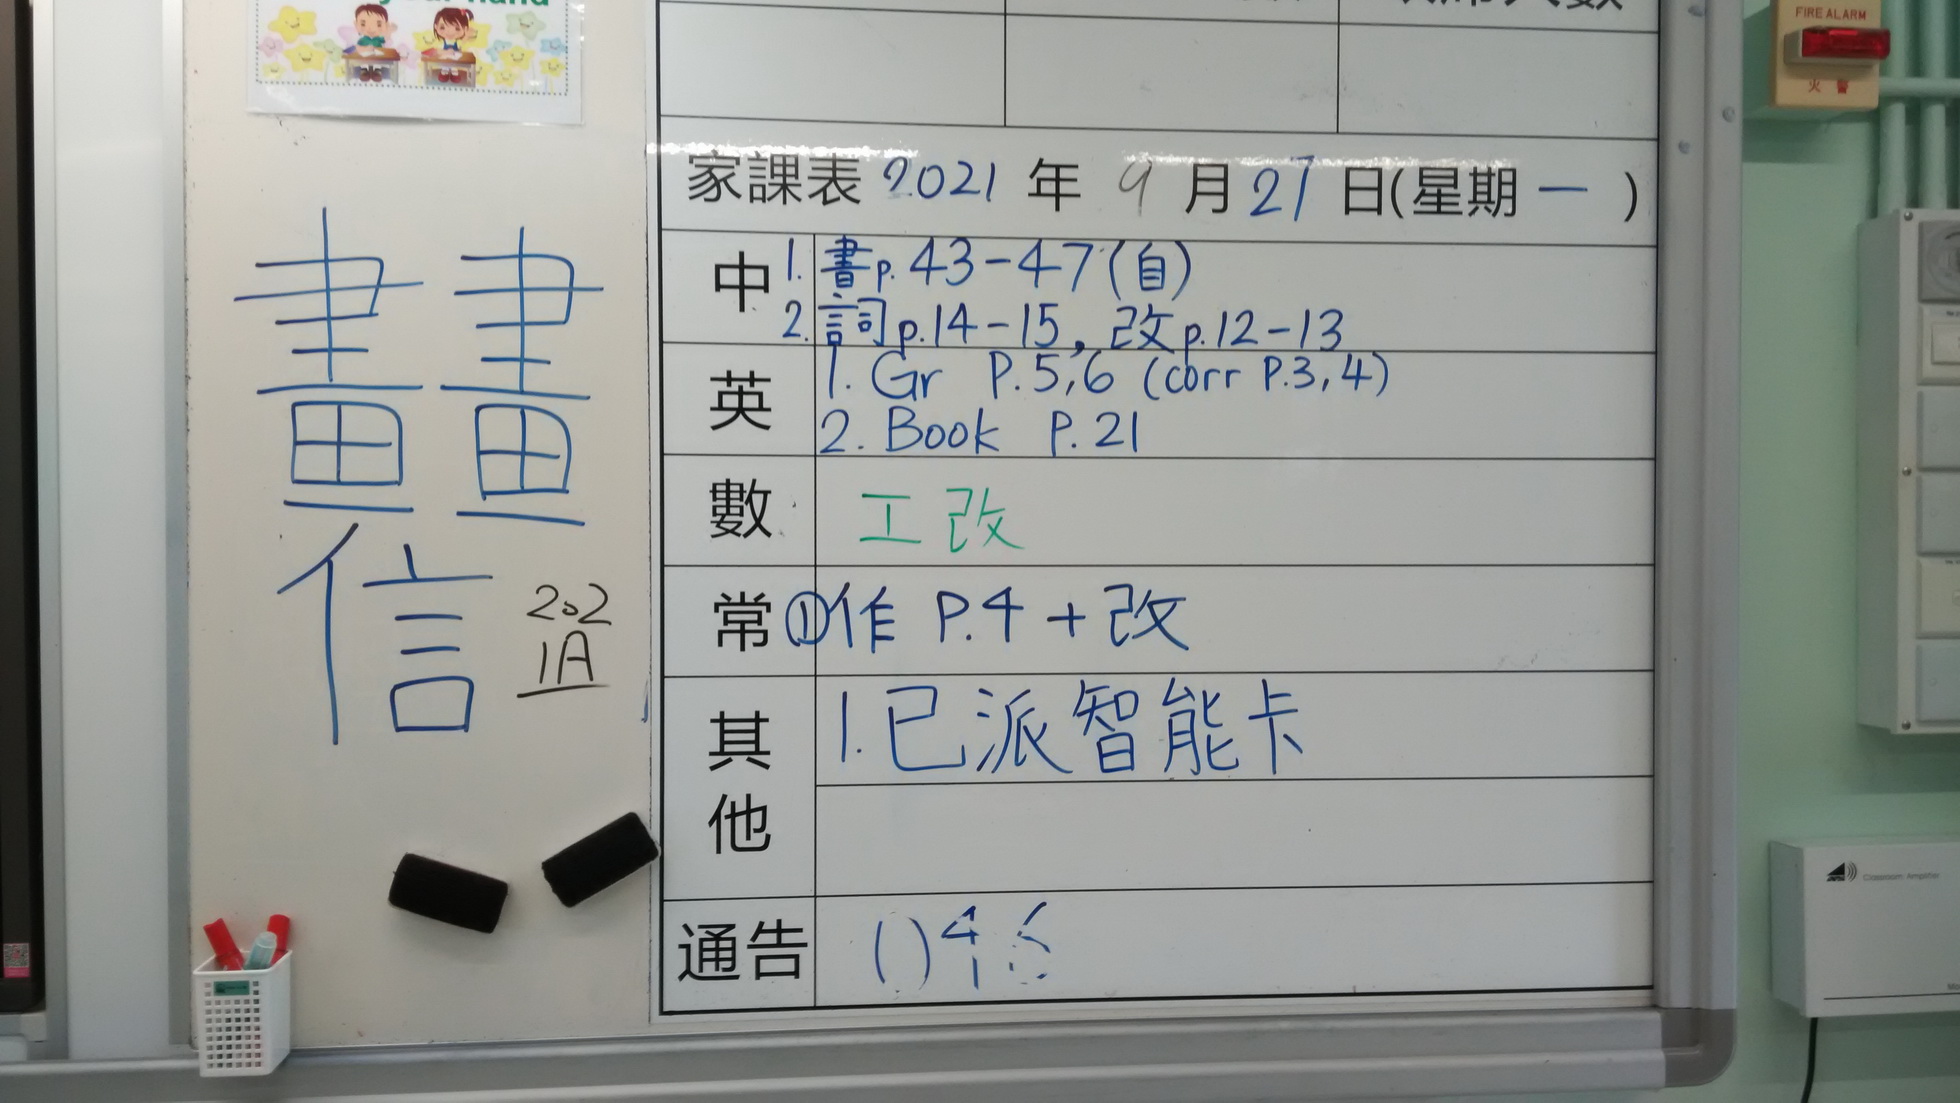 FIRE ALARM
火警
家課表 2021 年 9 月 27 日(星期 一 )
中 1. 書p.43-47(自)
2. 詞p.14-15, 改p.12-13
英 1. Gr P.5,6 (corr P.3,4)
2. Book P.21
數 工改
常 ①作 P.4 + 改
其他 1. 已派智能卡
通告 ( )
畫畫
信
202
1A
Classroom Amplifier